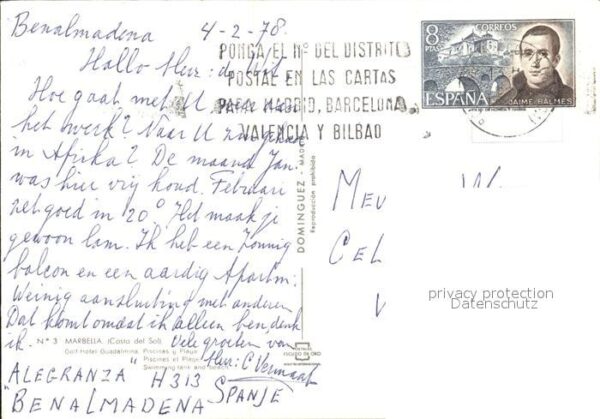 Benalmadena 4-2-78.
Hallo Heer de Wit.
Hoe gaat met U
het werk? Naar U
in Afrika? De maand Jan.
was hier vrij koud. Februari
zet goed in 20° Het maak je
gewoon lam. Ik heb een zonnig
balcon en een aardig Apartm.
Weinig aansluiting met anderen
Dat komt omdat ik alleen ben, denk
ik. Vele groeten van
Heer: C Vermaat
"ALEGRANZA" H313
BENALMADENA SPANJE
Nº 3 MARBELLA. (Costa del Sol).
Golf-Hotel Guadalmina. Piscinas y Playa
Piscines et Plage
Swimming tank and beach
DOMINGUEZ - MADRID
Reproducción prohibida
PONGA EL Nº DEL DISTRITO
POSTAL EN LAS CARTAS
PARA MADRID, BARCELONA,
VALENCIA Y BILBAO
8
PTAS
CORREOS
ESPAÑA
JAIME BALMES
MEV
CEL
V
privacy protection
Datenschutz